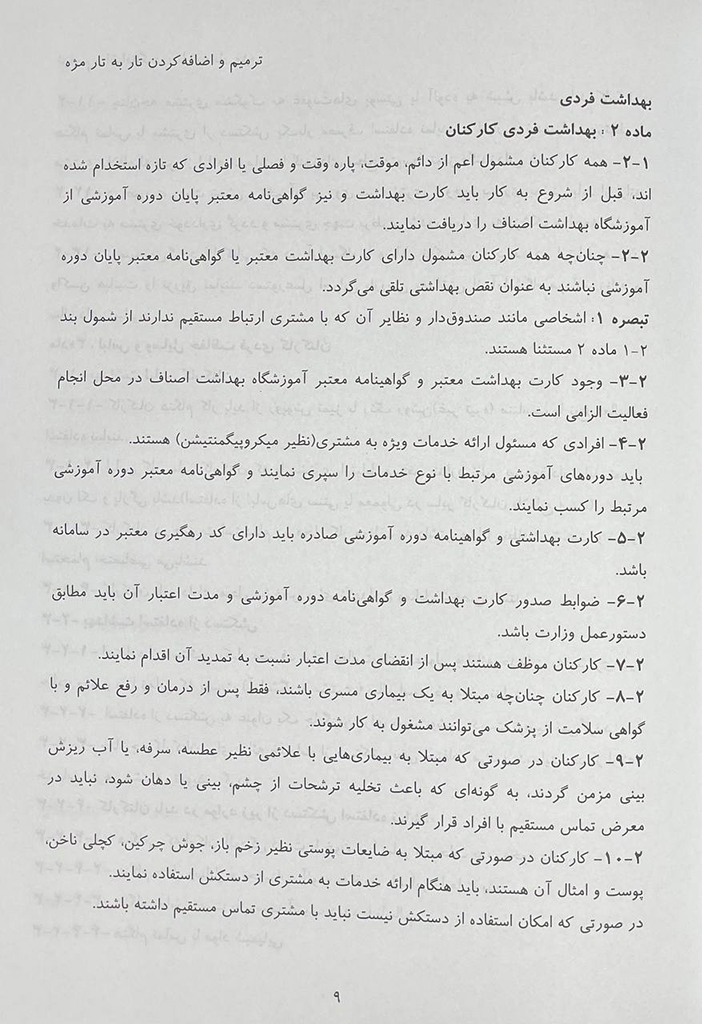 ترمیم و اضافه‌کردن تار به تار مژه
بهداشت فردی
ماده ۲ : بهداشت فردی کارکنان
۲-۱- همه کارکنان مشمول اعم از دائم، موقت، پاره وقت و فصلی یا افرادی که تازه استخدام شده
اند، قبل از شروع به کار باید کارت بهداشت و نیز گواهی‌نامه معتبر پایان دوره آموزشی از
آموزشگاه بهداشت اصناف را دریافت نمایند.
۲-۲- چنان‌چه همه کارکنان مشمول دارای کارت بهداشت معتبر یا گواهی‌نامه معتبر پایان دوره
آموزشی نباشند به عنوان نقص بهداشتی تلقی می‌گردد.
تبصره ۱: اشخاصی مانند صندوق‌دار و نظایر آن که با مشتری ارتباط مستقیم ندارند از شمول بند
۲-۱ ماده ۲ مستثنا هستند.
۲-۳- وجود کارت بهداشت معتبر و گواهینامه معتبر آموزشگاه بهداشت اصناف در محل انجام
فعالیت الزامی است.
۲-۴- افرادی که مسئول ارائه خدمات ویژه به مشتری(نظیر میکروپیگمنتیشن) هستند.
باید دوره‌های آموزشی مرتبط با نوع خدمات را سپری نمایند و گواهی‌نامه معتبر دوره آموزشی
مرتبط را کسب نمایند.
۲-۵- کارت بهداشتی و گواهینامه دوره آموزشی صادره باید دارای کد رهگیری معتبر در سامانه
باشد.
۲-۶- ضوابط صدور کارت بهداشت و گواهی‌نامه دوره آموزشی و مدت اعتبار آن باید مطابق
دستورعمل وزارت باشد.
۲-۷- کارکنان موظف هستند پس از انقضای مدت اعتبار نسبت به تمدید آن اقدام نمایند.
۲-۸- کارکنان چنان‌چه مبتلا به یک بیماری مسری باشند، فقط پس از درمان و رفع علائم و با
گواهی سلامت از پزشک می‌توانند مشغول به کار شوند.
۲-۹- کارکنان در صورتی که مبتلا به بیماری‌هایی با علائمی نظیر عطسه، سرفه، یا آب ریزش
بینی مزمن گردند، به گونه‌ای که باعث تخلیه ترشحات از چشم، بینی یا دهان شود، نباید در
معرض تماس مستقیم با افراد قرار گیرند.
۲-۱۰- کارکنان در صورتی که مبتلا به ضایعات پوستی نظیر زخم باز، جوش چرکین، کچلی ناخن،
پوست و امثال آن هستند، باید هنگام ارائه خدمات به مشتری از دستکش استفاده نمایند.
در صورتی که امکان استفاده از دستکش نیست نباید با مشتری تماس مستقیم داشته باشند.
۹